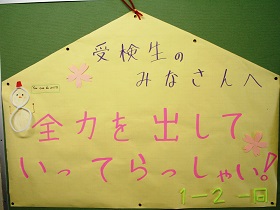 受検生の
みなさんへ
全力を出して
いってらっしゃい!
1-2 一同